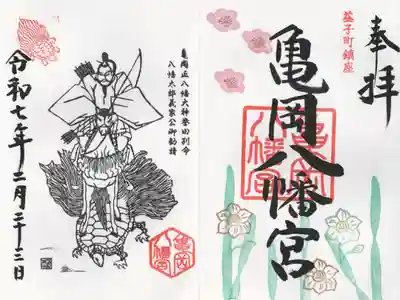 益子町鎮座
奉拝
亀岡八幡宮
亀岡八幡宮
亀岡正八幡大神誉田別命
八幡太郎義家公御勧請
令和七年二月二十三日
亀岡八幡